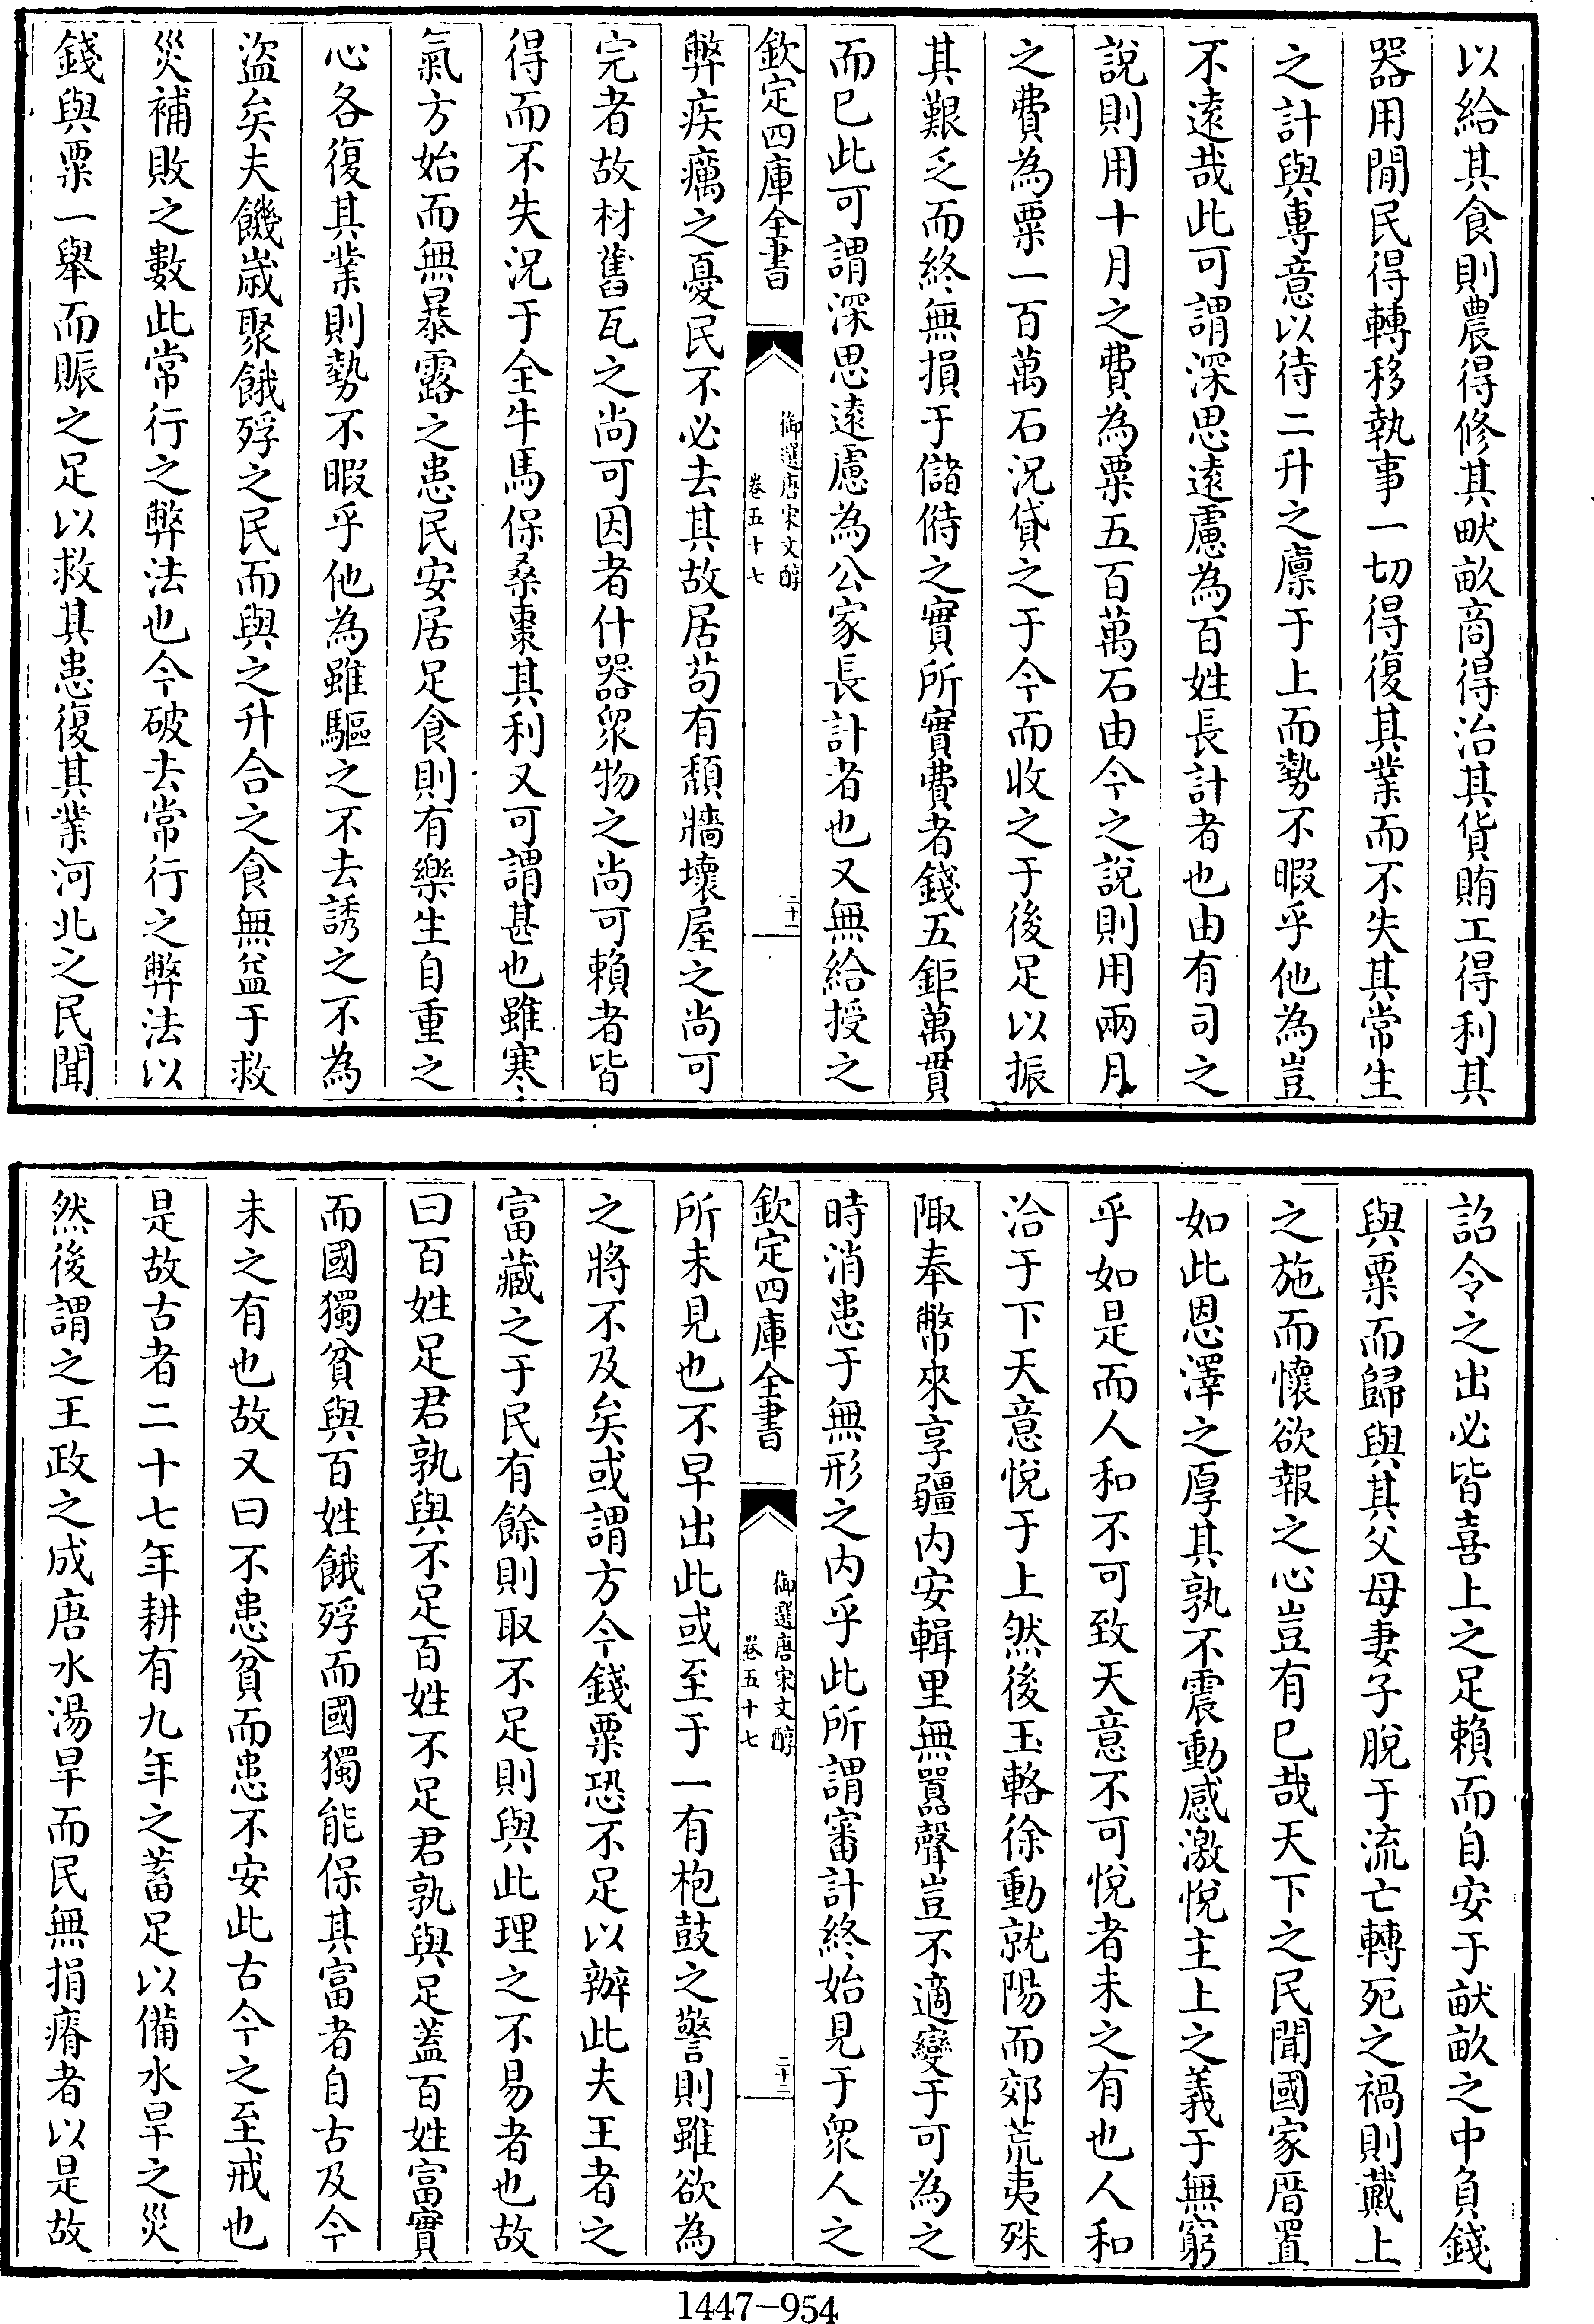 以給其食則農得修其畎畝商得治其貨賄工得利其
器用閒民得轉移執事一切得復其業而不失其常生
之計與專意以待二升之廩于上而勢不暇乎他為豈
不遠哉此可謂深思遠慮為百姓長計者也由有司之
說則用十月之費為粟五百萬石由今之說則用兩月
之費為粟一百萬石況貸之于今而收之于後足以振
其艱乏而終無損于儲偫之實所實費者錢五鉅萬貫
而已此可謂深思遠慮為公家長計者也又無給授之
欽定四庫全書
御選唐宋文醇
卷五十七
二十二
弊疾癘之憂民不必去其故居苟有頹牆壞屋之尚可
完者故材舊瓦之尚可因者什器眾物之尚可賴者皆
得而不失況于全牛馬保桑棗其利又可謂甚也雖寒
氣方始而無暴露之患民安居足食則有樂生自重之
心各復其業則勢不暇乎他為雖驅之不去誘之不為
盜矣夫饑歲聚餓殍之民而與之升合之食無益于救
災補敗之數此常行之弊法也今破去常行之弊法以
錢與粟一舉而賑之足以救其患復其業河北之民聞
詔令之出必皆喜上之足賴而自安于畎畝之中負錢
與粟而歸與其父母妻子脫于流亡轉死之禍則戴上
之施而懷欲報之心豈有已哉天下之民聞國家厝置
如此恩澤之厚其孰不震動感激悅主上之義于無窮
乎如是而人和不可致天意不可悅者未之有也人和
洽于下天意悅于上然後玉輅徐動就陽而郊荒夷殊
陬奉幣來享疆內安輯里無囂聲豈不適變于可為之
時消患于無形之內乎此所謂審計終始見于眾人之
欽定四庫全書
御選唐宋文醇
卷五十七
二十三
所未見也不早出此或至于一有枹鼓之警則雖欲為
之將不及矣或謂方今錢粟恐不足以辦此夫王者之
富藏之于民有餘則取不足則與此理之不易者也故
曰百姓足君孰與不足百姓不足君孰與足蓋百姓富實
而國獨貧與百姓餓殍而國獨能保其富者自古及今
未之有也故又曰不患貧而患不安此古今之至戒也
是故古者二十七年耕有九年之蓄足以備水旱之災
然後謂之王政之成唐水湯旱而民無捐瘠者以是故
1447-954